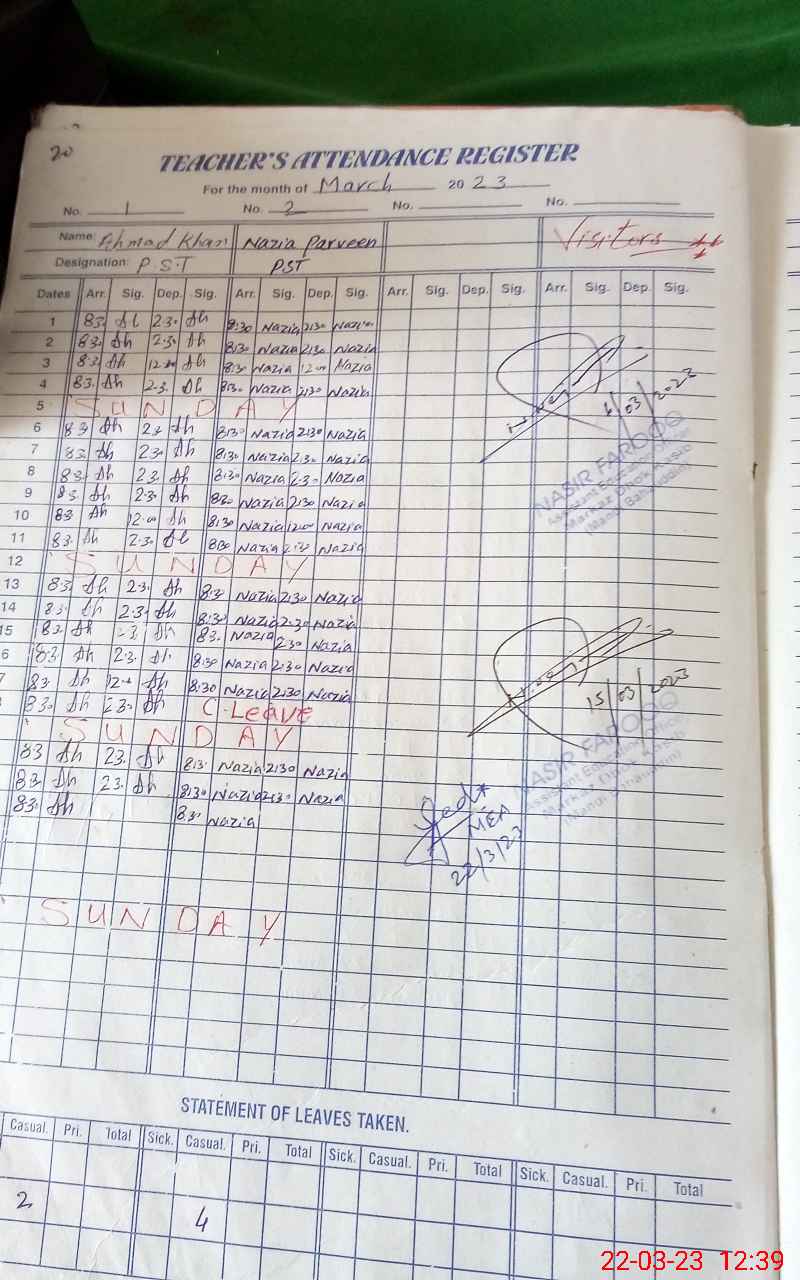 20
TEACHER'S ATTENDANCE REGISTER
For the month of March 2023
No. 1 No. 2 No. No.
Name: Ahmad Khan Nazia Parveen Visitors
Designation: P.S.T PST
Dates Arr. Sig. Dep. Sig. Arr. Sig. Dep. Sig. Arr. Sig. Dep. Sig. Arr. Sig. Dep. Sig.
1 8:3. Ah 2.30 Ah 8:30 Nazia 2:30 Nazia
2 8:3. Ah 2.30 Ah 8:30 Nazia 2:30 Nazia
3 8:3. Ah 12.00 Ah 8:30 Nazia 12:00 Nazia
4 8:3. Ah 2.3. Ah 8:30 Nazia 2:30 Nazia
5 SUNDAY
6 8:3 Ah 2.3. Ah 8:30 Nazia 2:30 Nazia
7 8:3. Ah 2.30 Ah 8:30 Nazia 2:30 Nazia
8 8:3. Ah 2.3. Ah 8:30 Nazia 2:30 Nazia
9 8:3. Ah 2.30 Ah 8:30 Nazia 2:30 Nazia
10 8:3. Ah 12.00 Ah 8:30 Nazia 12:00 Nazia
11 8:3. Ah 2.30 Ah 8:30 Nazia 2:30 Nazia
12 SUNDAY
13 8:3. Ah 2.3. Ah 8:3. Nazia 2:30 Nazia
14 8:3. Ah 2.3. Ah 8:30 Nazia 2:30 Nazia
15 8:3. Ah 2.3. Ah 8:3. Nazia 2:30 Nazia
6 8:3. Ah 2.3. Ah 8:30 Nazia 2:30 Nazia
7 8:3. Ah 12.00 Ah 8:30 Nazia 2:30 Nazia
8:30 Ah 2:30 Ah C-Leave
SUNDAY
8:3 Ah 2.3. Ah 8:3. Nazia 2:30 Nazia
8:3. Ah 2.3. Ah 8:30 Nazia 2:30 Nazia
8:3. Ah 8:30 Nazia
SUNDAY
6/03/2023
NASIR FAROOQ
Assistant Education Officer
Markaz Dhok Kasib
(Mandi Bahauddin)
15/03/2023
NASIR FAROOQ
Assistant Education Officer
Markaz Dhok Kasib
(Mandi Bahauddin)
MEA
22/3/23
STATEMENT OF LEAVES TAKEN.
Casual. Pri. Total Sick. Casual. Pri. Total Sick. Casual. Pri. Total Sick. Casual. Pri. Total
2 4
22-03-23 12:39